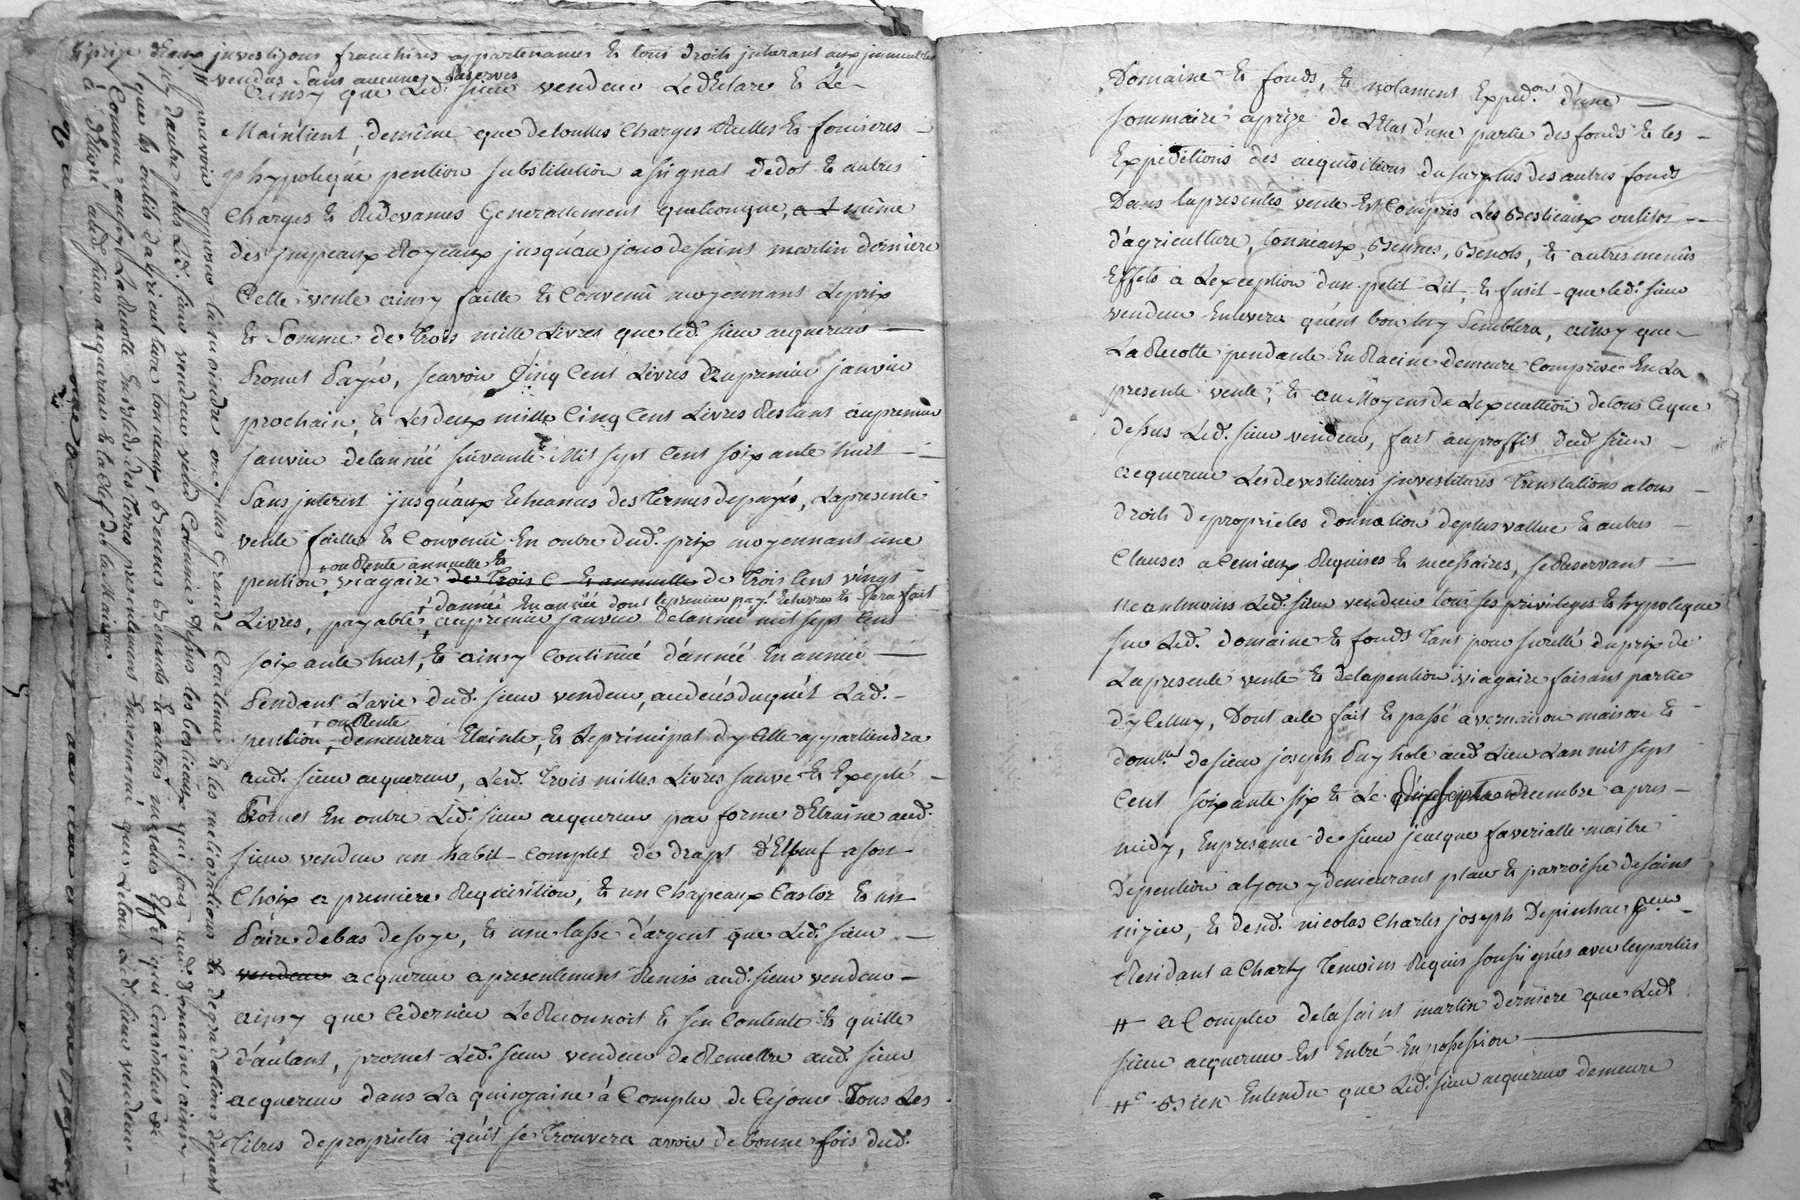 aprise d'eaux investizons franchises appartenances & tous droits inherant aux immeubles
vendus sans aucunes reserves
Ainsy que Led. sieur vendeur Le Déclare & Le
Maintient, demême que de touttes Charges Réelles & foncieres
hypoteque pention substitution assignat de dot & autres
Charges & Redevances Generallement quelconque, même
des jmpeaux Royeaux jusqu'au jour de saint martin derniere
Cette vente ainsy faitte & Convenüe moyennant Le prix
& Somme de trois mille Livres que led. sieur acquereur
Promet Payer, scavoir Cinq Cent Livres au premier janvier
prochain, & Les deux mille Cinq Cent Livres Restant au premier
janvier de l'année suivante Mil sept Cent soixante huit
Sans jnterest jusqu'aux Echeances des Termes de payes, La presente
vente faitte & Convenüe En outre dud. prix moyennant une
ou Rente annuelle &
pention, viagaire de trois C & annuelle de Trois Cent vingt
d'année En année dont le premier pay.t Echerra & sera fait
Livres, payable au premier janvier de lannée mil sept Cent
soixante huit, & ainsy Continué d'année En année
Pendant La vie dud. sieur vendeur, au decès duquel Lad.
ou Rente
pention, demeurera Etainte, & Le principal d'ycelle appartiendra
aud. sieur acquereur, Lesd. Trois milles Livres sauve & Excepté
Promet En outre Led. sieur acquereur par forme d'Etraine aud.
sieur vendeur un habit Complet de drapt d'Elbeuf a son
Choix a premiere Requisition, & un Chapeaux Castor & un
Paire de bas de soye, & une tasse d'argent que Led. sieur
vendeur acquereur a presentement Remis aud. sieur vendeur
ainsy que Ce dernier Le Reconnoit & s'en Contente & quitte
d'autant, promet Led. sieur vendeur de Remettre aud. sieur
acquereur dans La quinzaine à Compter de Ce jour Tous Les
titres de proprietes qu'il se Trouvera avoir de bonne fois dud.
# pouvoir opposer la qu moindre ou plus Grande Contenüe & les meliorations & degradations de part
& d'autre plus Led. sieur vendeur vend Comme dessus les bestieaux qui sont aud. domaine ainsy
que les outils d'agriculture tonneaux, bennes benots & autres menus Effet qui Consistent
Comme aussy La Recolte En bled des Terres presentement Ensemencé que Le tout Led. sieur vendeur
à délivré aud. sieur acquereur & la Clef de la Maison
Domaine & fonds, & notament Exped.on d'une
sommaire aprise de L'Etat d'une partie des fonds & les
Expeditions des acquisitions du surplus des autres fonds
Dans la presentes vente Est Compris Les bestieaux outils
d'agriculture, tonneaux, Bennes, Benots, & autres menûs
Effets a L'exception d'un petit Lit, & fusil que led. sieur
vendeur Enlevera quant bon luy Semblera, ainsy que
La Recolte pendante En Racine demeure Comprise En La
presente vente; & au Moyens de L'executtion de tous Ce que
dessus Led. sieur vendeur, fait au proffit dud. sieur
acquereur Les devestitures jnvestitures Translations a tous
droits de proprietes donnation de plus vallue & autres
Clauses a Ce mieux Requises & necessaires, se Reservant
neantmoins Led. sieur vendeur tous ses privileges & hypoteque
sur Led. domaine & fonds Tant pour sureté du prix de
La presente vente & de la pention viagaire faisant partie
dycelluy, Dont acte fait & passé a vernaison maison &
dom.lle de sieur joseph Puy hole aud. Lieu Lan mil sept
Cent soixante six & Le dixsepte decembre apres
midy, En presence de sieur jeacque faverialle maitre
de pention a Lyon y demeurant place & parroisse de saint
nizier, & dud. nicolas Charles joseph Depinhac
Residant a Charly Temoins Requis soussignés avec les parties
# a Compter de la saint martin derniere que Led.
sieur acquereur Est Entré En possession
#c bien Entendu que Led. sieur acquereur demeure